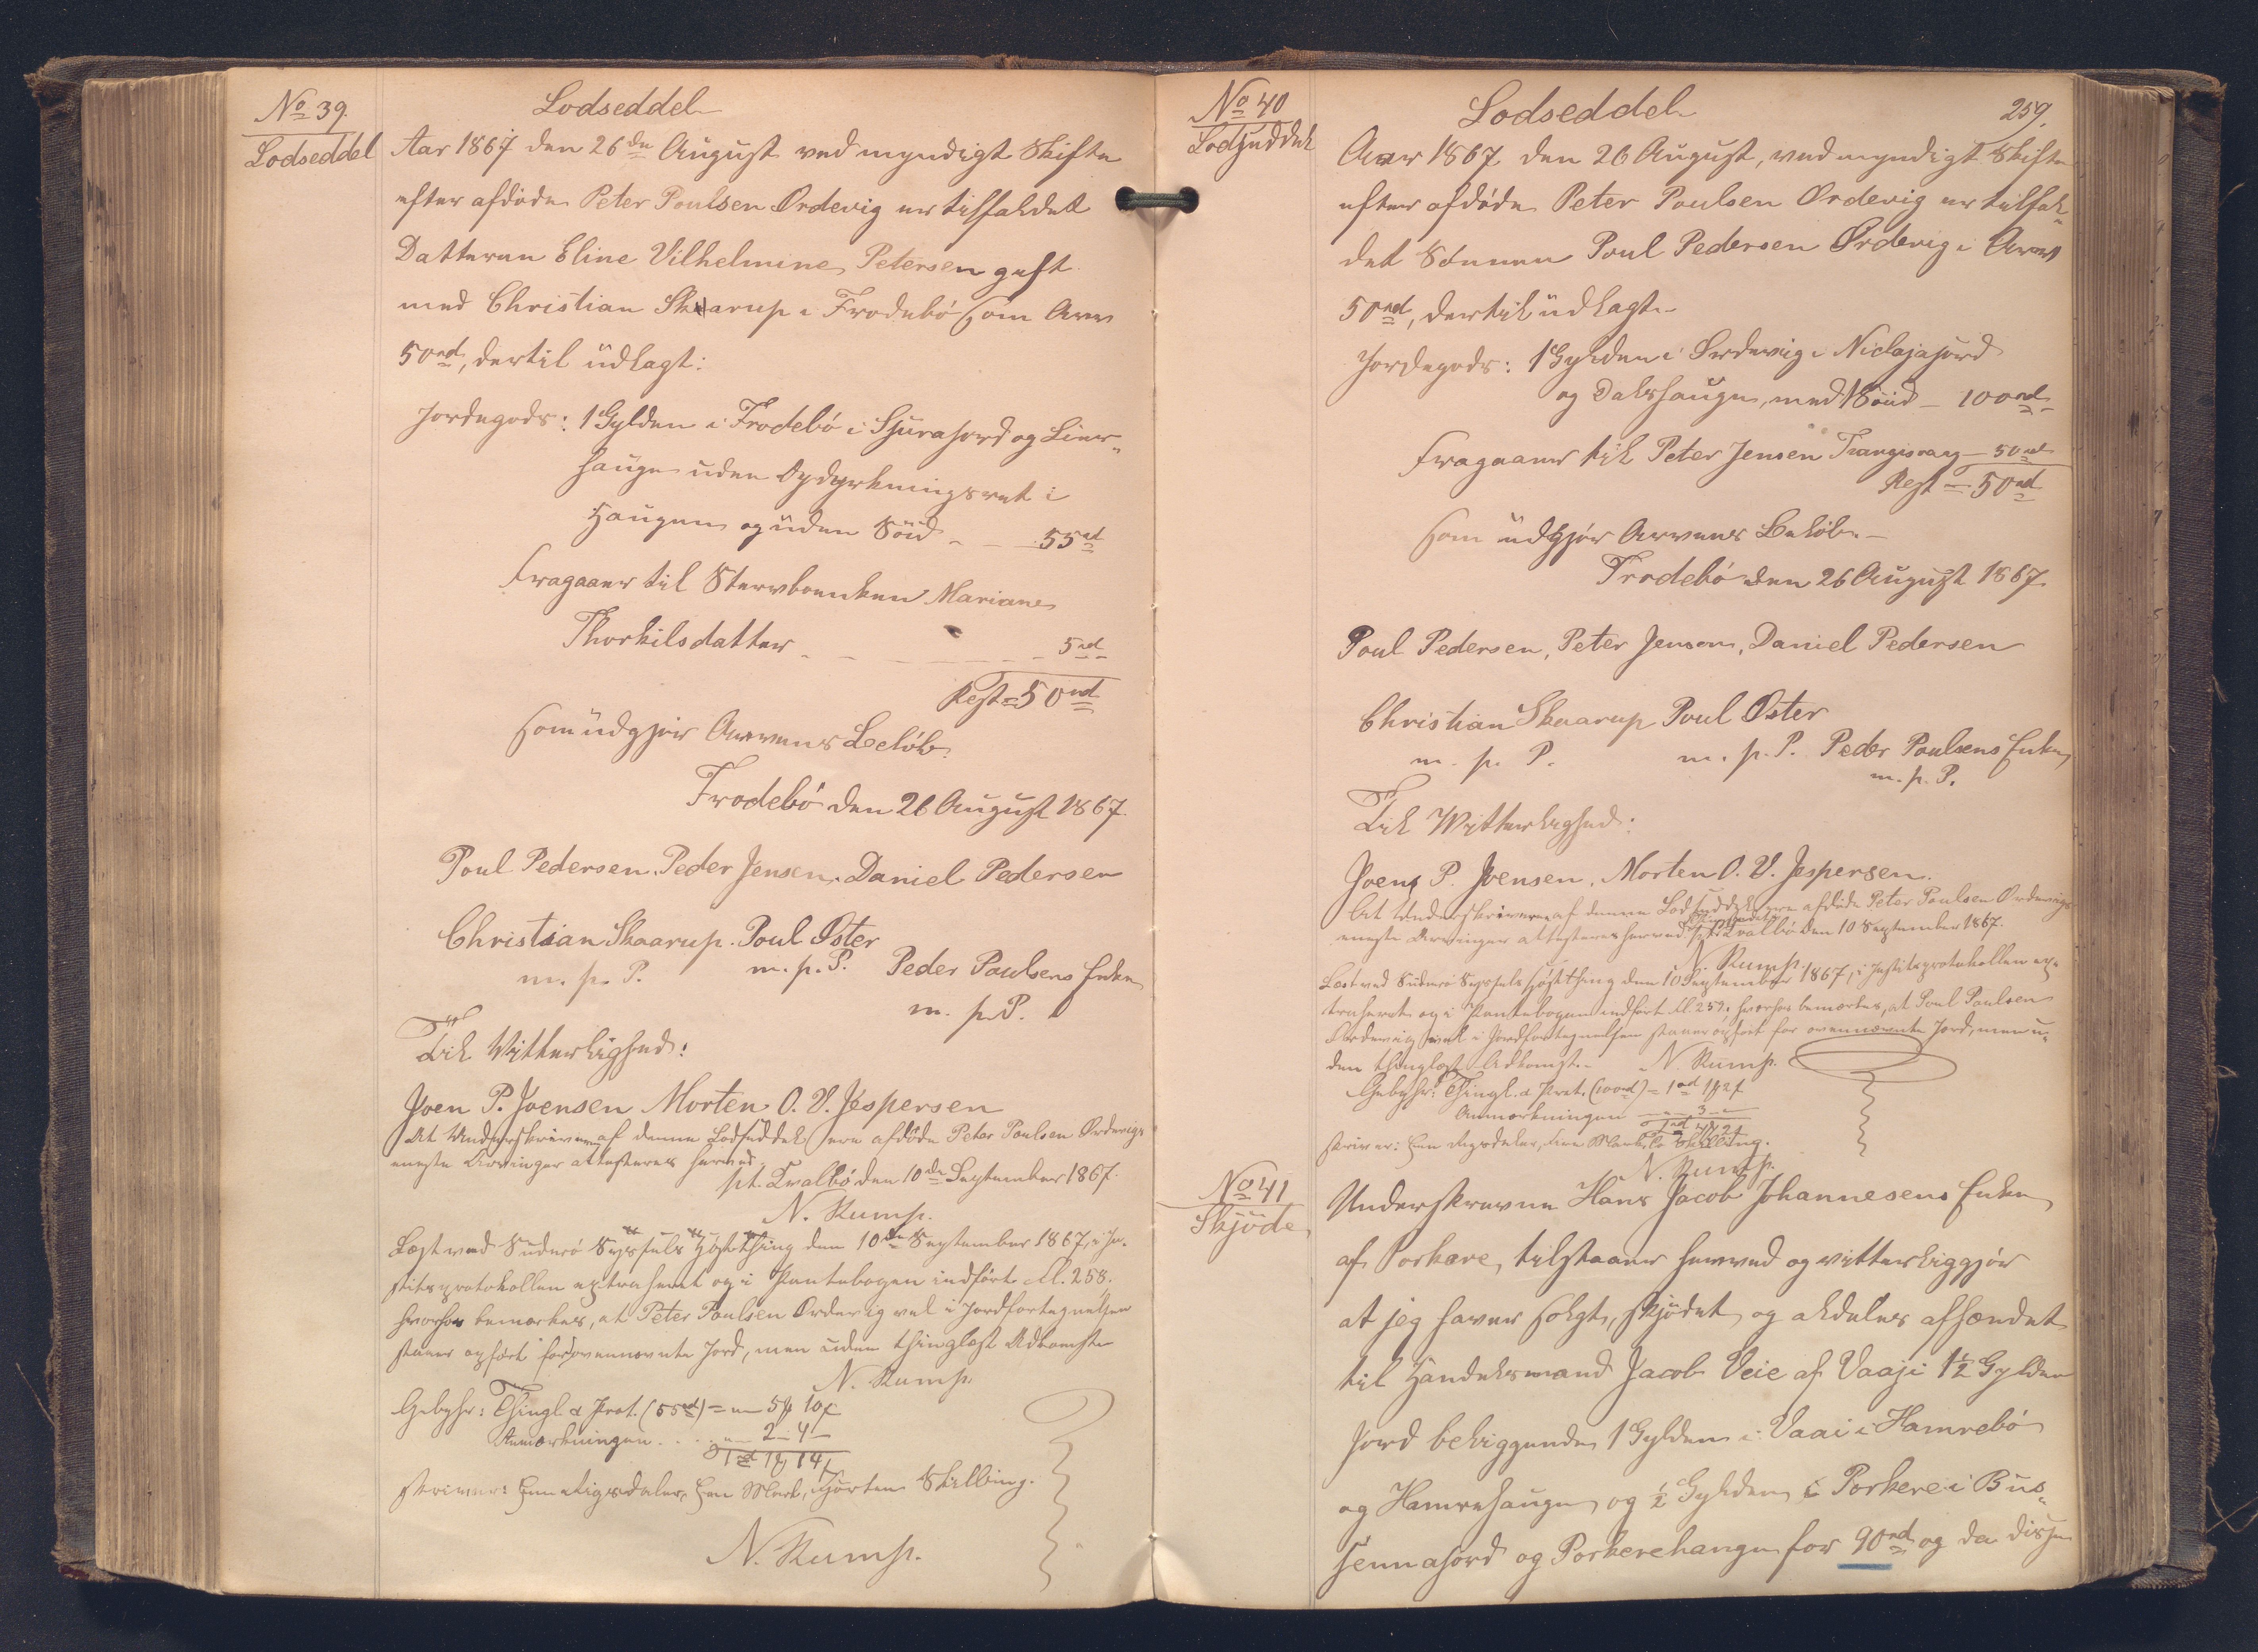 No 39.
Lodseddel
Lodseddel
Aar 1867 den 26de August ved myndigt Skifte
efter afdøde Peter Poulsen Ordevig er tilfaldet
Datteren Eline Vilhelmine Petersen gift
med Christian Skaarup i Frodebø som Arv
50rd, dertil udlagt:
Jordegods: 1 Gylden i Frodebø i Sjurajord og Lier-
haugen uden Opdyrkningsret i
Haugen og uden Söid - - 55rd
Fragaaer til Stervboenken Mariane
Thorkilsdatter - - - - - 5rd
Rest = 50rd
som udgjør Arvens Beløb.
Frodebø den 26 August 1867.
Poul Pedersen. Peder Jensen. Daniel Pedersen
Christian Skaarup. Poul Øster
m. p. P. m. p. P. Peder Poulsens Enke
m. p. P.
Til Vitterlighed:
Joen P. Joensen Morten O. V. Jespersen
At Underskriverne af denne Lodseddel ere afdøde Peter Poulsen Ordevigs
eneste Arvinger attesteres herved,
pt. Qvalbø den 10de September 1867.
N. Rump.
Læst ved Suderø Syssels Høstthing den 10de September 1867, i Ju-
stitsprotokollen extraheret og i Pantebogen indført fol. 258.
hvorhos bemærkes, at Peter Poulsen Ordevig vel i Jordfortegnelsen
staaer opført for ovennævnte Jord, men uden thinglæst Adkomst
N. Rump.
Gebyhr: Thingl. & Prot. (55rd) = „ 5 10
Anmærkningen . . . „ 2 - 4 -
1rd 1 14
skriver: Een Rigsdaler, Een Mark, Fjorten Skilling.
N. Rump.
No 40
Lodseddel
Lodseddel
259.
Aar 1867 den 26 August, ved myndigt Skifte
efter afdøde Peter Poulsen Ordevig er tilfal-
det Sønnen Poul Pedersen Ordevig i Arv
50rd, dertil udlagt-
Jordegods: 1 Gylden i Ordevig i Niclajajord
og Dalshaugen, med Söid - 100rd
Fragaaer til Peter Jensen Trangisvaag - 50rd
Rest = 50rd
som udgjør Arvens Beløb.-
Frodebø den 26 August 1867.
Poul Pedersen, Peter Jensen, Daniel Pedersen
Christian Skaarup Poul Øster
m. p. P. m. p. P. Peder Poulsens Enke
m. p. P.
Til Vitterlighed:
Joen P. Joensen, Morten O. V. Jespersen.
At Underskriverne af denne Lodseddel ere afdøde Peter Poulsen Ordevigs
eneste Arvinger attesteres herved pt. Qvalbø den 10 September 1867.
N. Rump.
Læst ved Suderø Syssels Høstthing den 10 September 1867, i Justitsprotokollen ex-
traheret og i Pantebogen indført fol. 259, hvorhos bemærkes, at Poul Poulsen
Ordevig vel i Jordfortegnelsen staaer opført for ovennævnte Jord, men u-
den thinglæst Adkomst.- N. Rump.
Gebyhr: Thingl. & Prot. (100rd) = 1rd 1 2
Anmærkningen - „ 3 -
skriver: Een Rigsdaler, Fire Mark, To Skilling.
N. Rump.
No 41
Skjøde
Underskrevne Hans Jacob Johannesens Enke
af Porkere, tilstaaer herved og vitterliggjør
at jeg haver solgt, skjødet og aldeles afhændet
til Handelsmand Jacob Veie af Vaaji 1½ Gylden
Jord beliggende 1 Gylden i Vaai i Hamrebø
og Hamrehaugen og ½ Gylden i Porkere i Bus-
sennajord og Porkerehaugen for 90rd og da disse